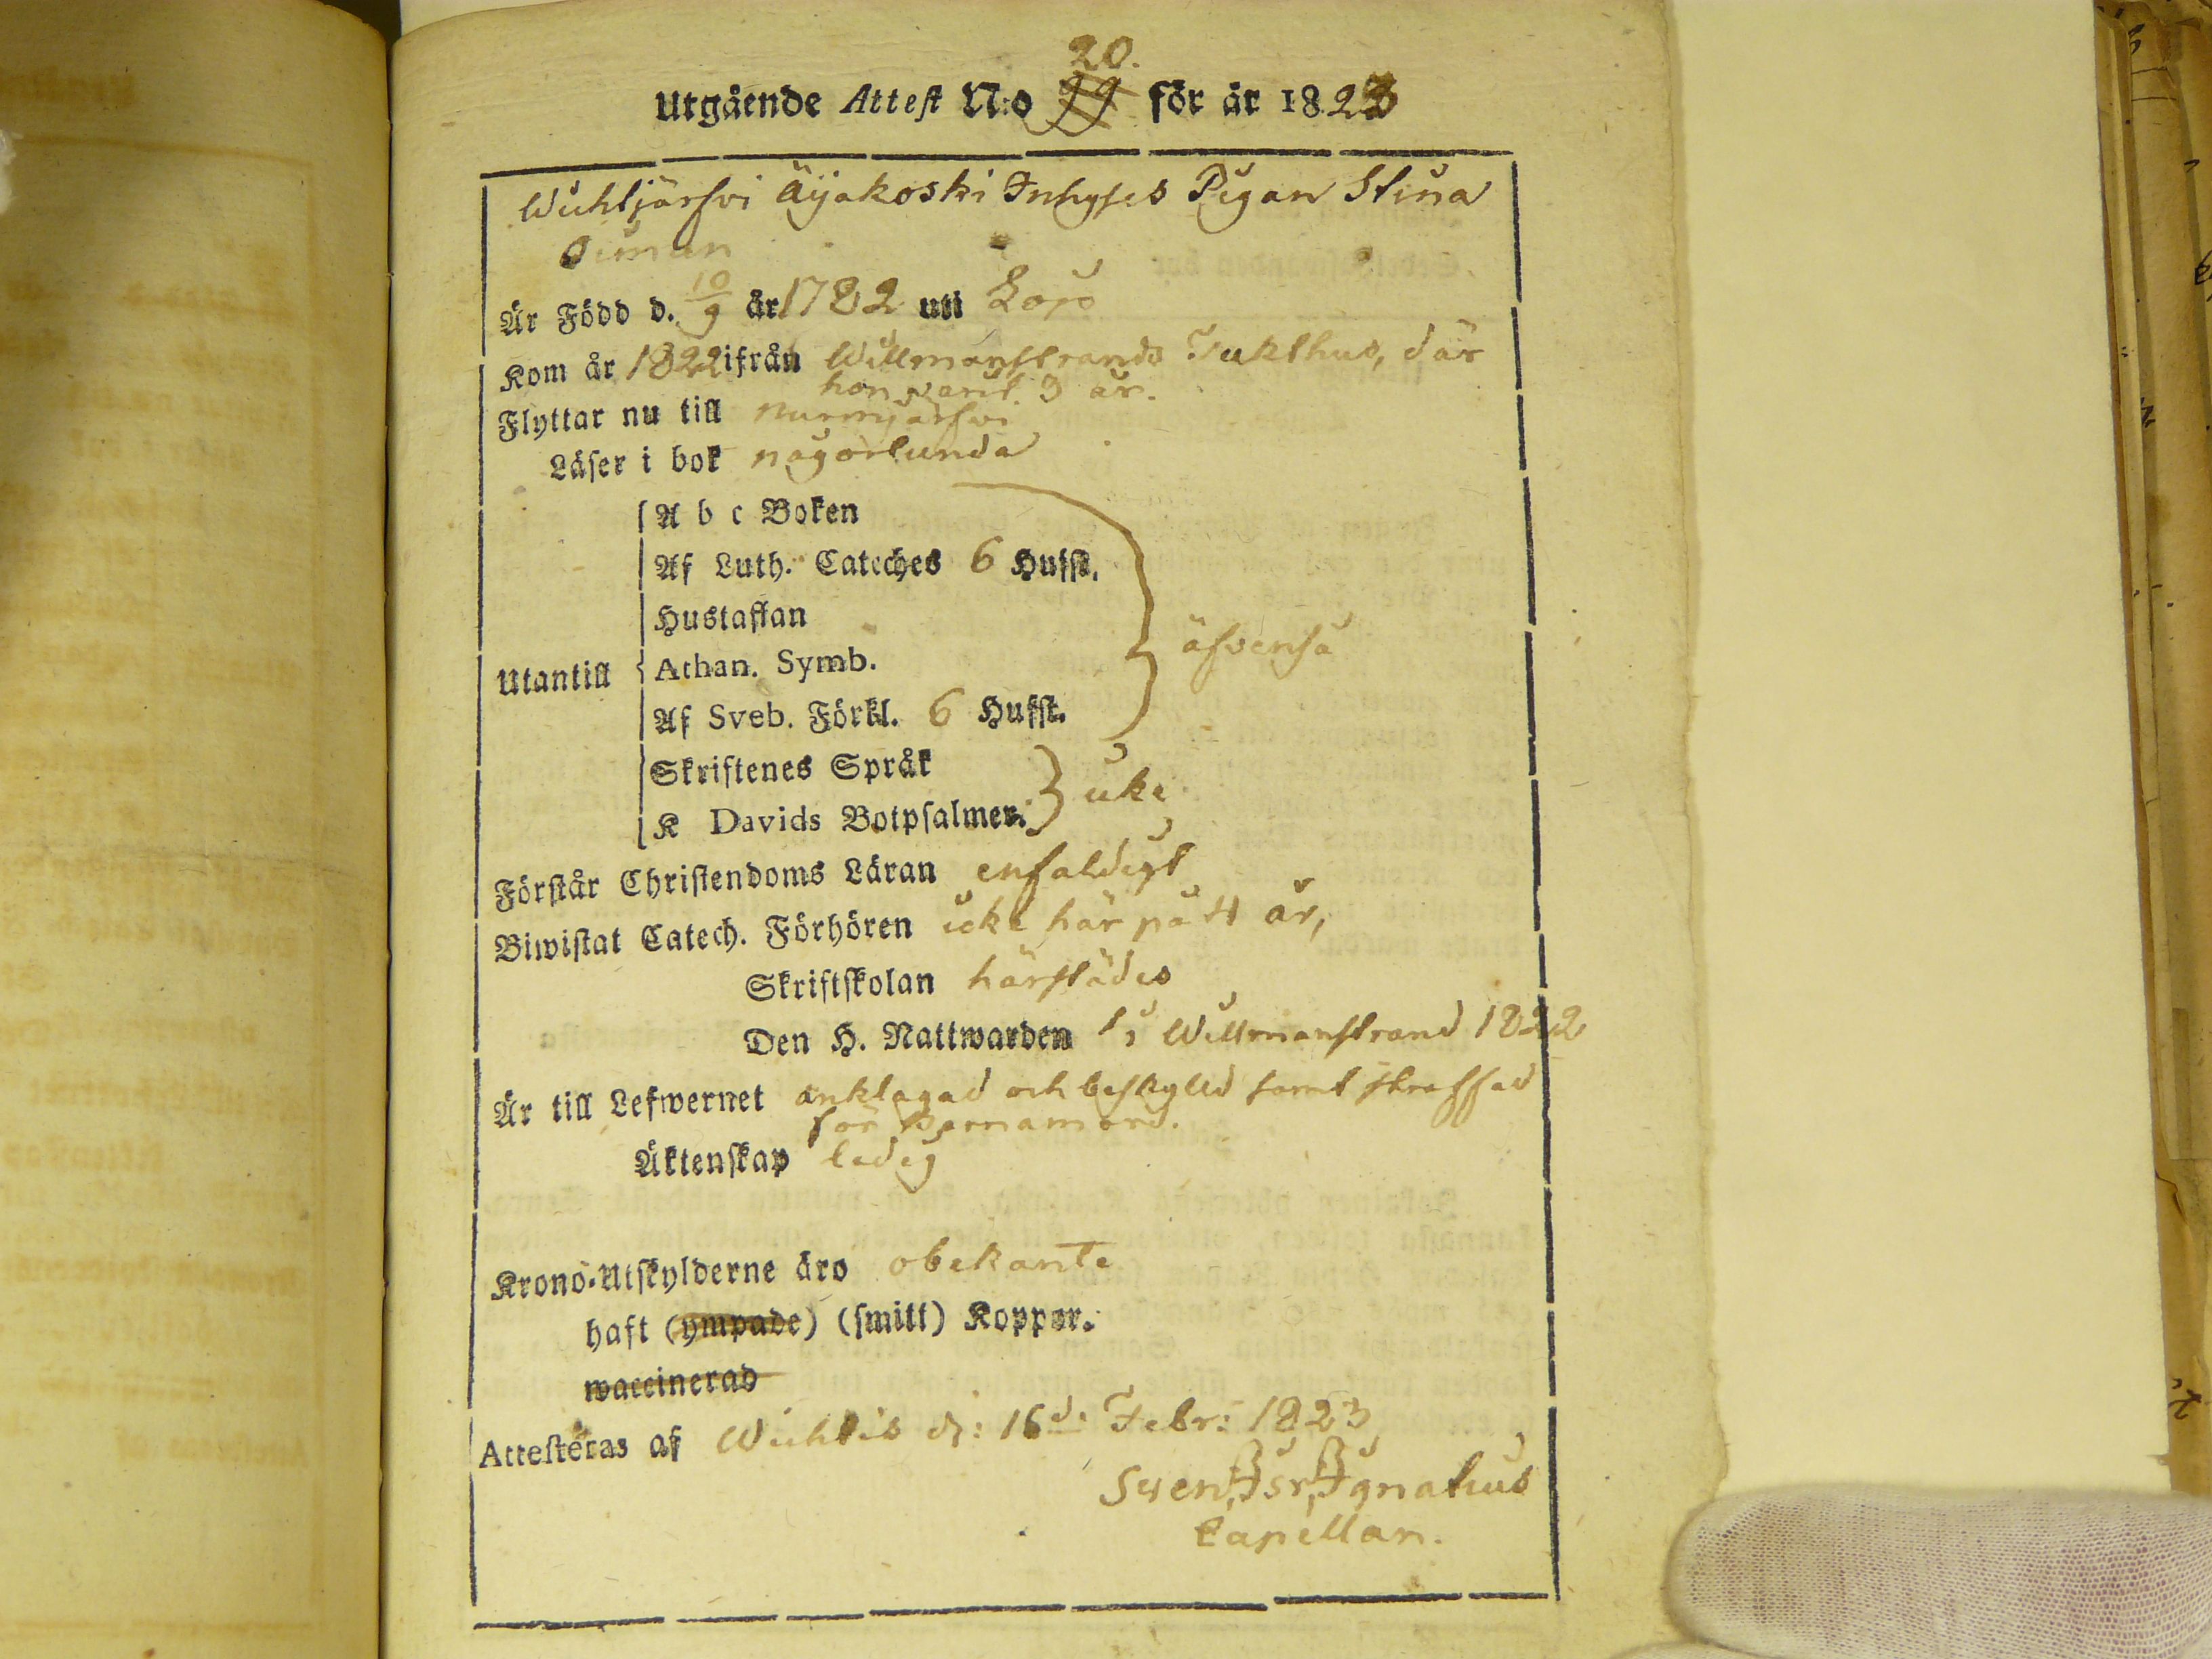 20.
Utgående Attest N:o för år 1823
Wichtjärfwi Äijakoski Inhyses Pigan Stina
Simun
Är Född d. 10/9 år 1782 uti Lojo
Kom år 1822 ifrån Willmanstrands Tukthus, där
hon varit 3 år.
Flyttar nu till Nurmijärfwi
Läser i bok någorlunda
A b c Boken
Af Luth. Cateches 6 Hufst.
Hustaflan
Utantill Athan. Symb. äfvenså
Af Sveb. Förkl. 6 Hufst.
Skriftenes Språk
K Davids Botpsalmer. icke
Förstår Christendoms Läran enfaldigt
Biwistat Catech. Förhören icke här på 4 år,
Skriftskolan härstädes
Den H. Nattwarden i Willmanstrand 1822
Är till Lefwernet anklagad och beskylld samt straffad
för Barnamord.
Äktenskap ledig
Krono-Utskylderne äro obekante
haft (ympade) (smitt) Koppor.
waccinerad
Attesteras af Wichtis d: 16d: Febr: 1823
Sven Isr. Ignatius
Capellan.